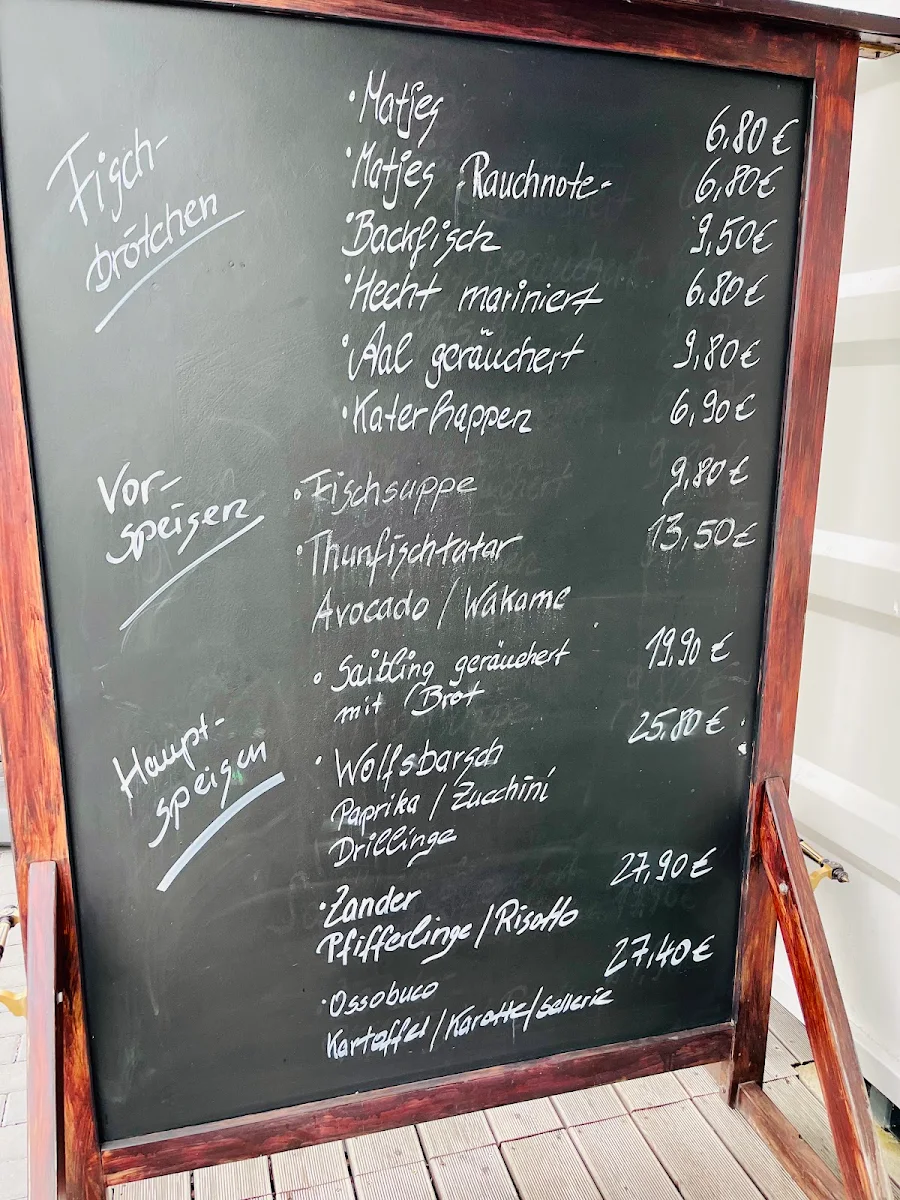 Fisch-
brötchen
• Matjes 6,80 €
• Matjes Rauchnote- 6,80 €
• Backfisch 9,50 €
• Hecht mariniert 6,80 €
• Aal geräuchert 9,80 €
• Katerhappen 6,90 €
Vor-
speisen
• Fischsuppe 9,80 €
• Thunfischtatar 13,50 €
Avocado / Wakame
• Saibling geräuchert 19,90 €
mit Brot
Haupt-
speisen
• Wolfsbarsch 25,80 €
Paprika / Zucchini
Drillinge
• Zander 27,90 €
Pfifferlinge / Risotto
• Ossobuco 27,40 €
Kartoffel / Karotte / Sellerie